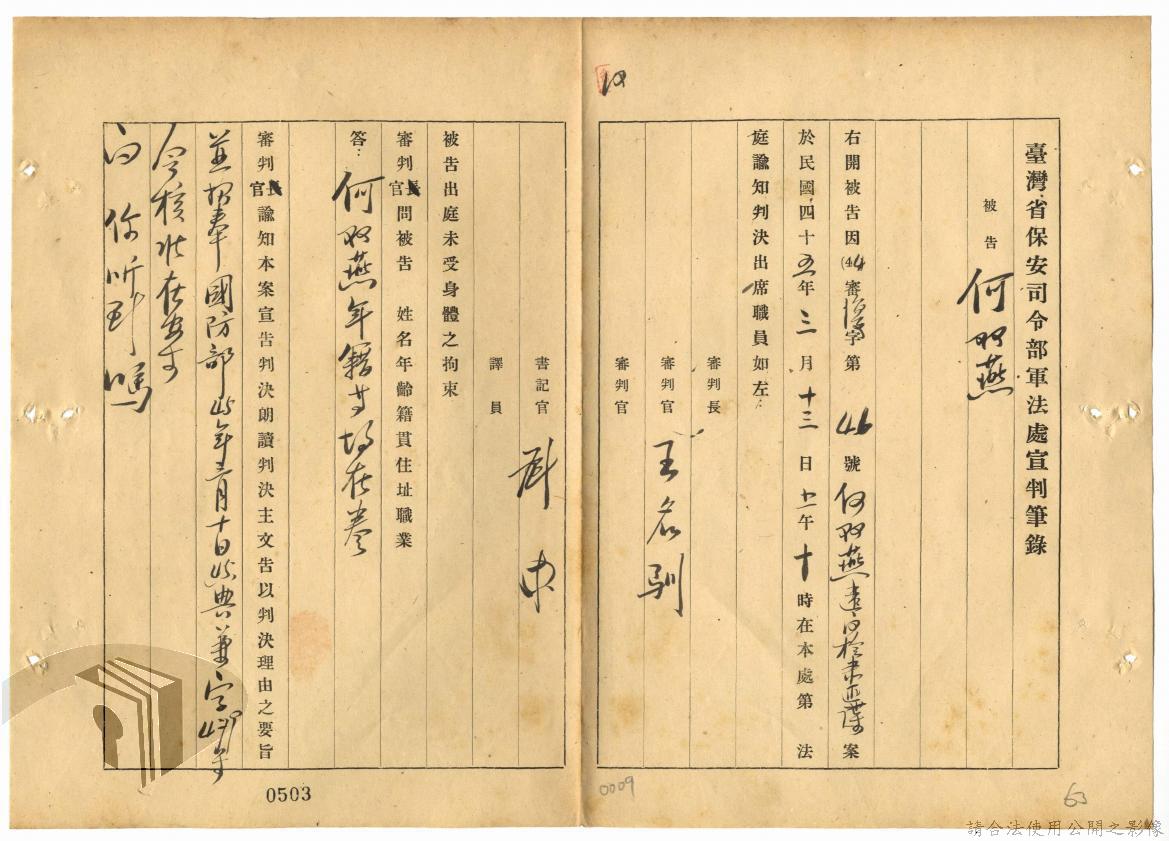 臺灣省保安司令部軍法處宣判筆錄
被告 何双燕
右開被告因(44)審 字第 46 號何双燕 案
於民國四十五年三月十三日上午十時在本處第 法
庭諭知判決出席職員如左:
審判長
審判官 王名馴
審判官
書記官
譯員
被告出庭未受身體之拘束
審判官問被告 姓名年齡籍貫住址職業
答:何双燕年籍 在卷
審判官諭知本案宣告判決朗讀判決主文告以判決理由之要旨
並 奉國防部45年三月十日 典 字 號
令核准在案
问 你听到 嗎
0503
0009
63
請合法使用公開之影像